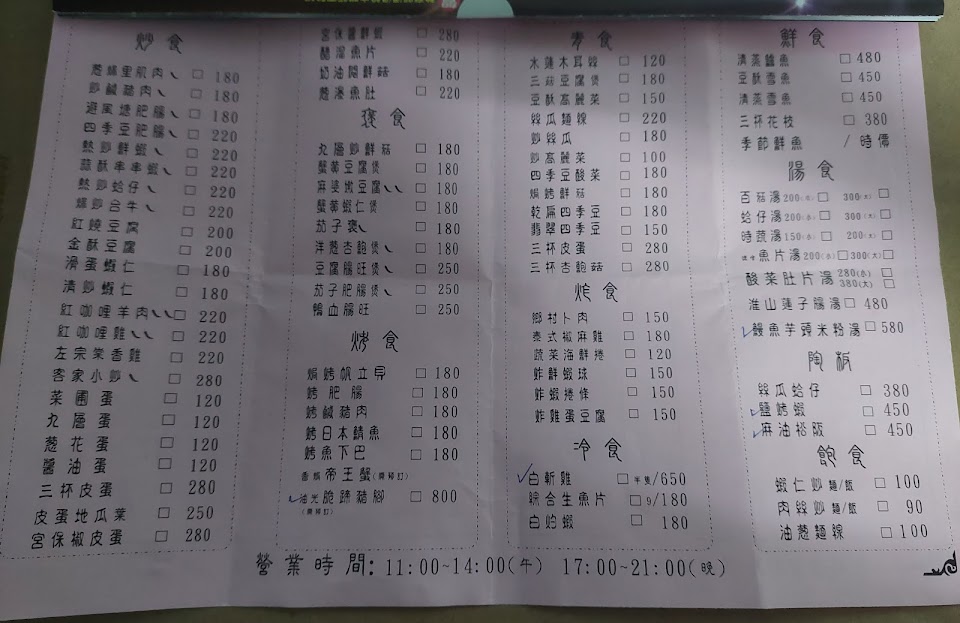 炒食
蔥爆里肌肉 □ 180
炒鹹豬肉 □ 180
避風塘肥腸 □ 180
四季豆肥腸 □ 220
熱炒鮮蝦 □ 220
蒜酥串串蝦 □ 220
熱炒蛤仔 □ 220
爆炒合牛 □ 220
紅燒豆腐 □ 200
金酥豆腐 □ 200
滑蛋蝦仁 □ 180
清炒蝦仁 □ 180
紅咖哩羊肉 □ 220
紅咖哩雞 □ 220
左宗棠香雞 □ 220
客家小炒 □ 280
菜圃蛋 □ 120
九層蛋 □ 120
蔥花蛋 □ 120
醬油蛋 □ 120
三杯皮蛋 □ 280
皮蛋地瓜葉 □ 250
宮保椒皮蛋 □ 280
宮保醬鮮蝦 □ 280
醋溜魚片 □ 220
奶油焗鮮菇 □ 180
蔥漫魚肚 □ 220
褒食
九層炒鮮菇 □ 180
蟹黃豆腐煲 □ 180
麻婆嫩豆腐 □ 180
蟹黃蝦仁煲 □ 180
茄子褒 □ 180
洋蔥杏鮑煲 □ 180
豆腐腸旺煲 □ 250
茄子肥腸煲 □ 250
鴨血腸旺 □ 250
烤食
焗烤帆立貝 □ 180
烤肥腸 □ 180
烤鹹豬肉 □ 180
烤日本鯖魚 □ 180
烤魚下巴 □ 180
香椒帝王蟹(需預訂)
油光脆蹄豬腳 □ 800
(需預訂)
素食
木蓮木耳絲 □ 120
三菇豆腐煲 □ 180
豆酥高麗菜 □ 150
絲瓜麵線 □ 220
炒絲瓜 □ 180
炒高麗菜 □ 100
四季豆酸菜 □ 180
焗烤鮮菇 □ 180
乾扁四季豆 □ 180
翡翠四季豆 □ 150
三杯皮蛋 □ 280
三杯杏鮑菇 □ 280
炸食
鄉村卜肉 □ 150
泰式椒麻雞 □ 180
蔬菜海鮮捲 □ 120
炸鮮蝦球 □ 150
炸蝦捲條 □ 150
炸雞蛋豆腐 □ 150
冷食
白斬雞 □ 半隻/650
綜合生魚片 □ 9/180
白灼蝦 □ 180
鮮食
清蒸鱸魚 □ 480
豆酥雪魚 □ 450
清蒸雪魚 □ 450
三杯花枝 □ 380
季節鮮魚 / 時價
湯食
百菇湯 200(小) □ 300(大) □
蛤仔湯 200(小) □ 300(大) □
時蔬湯 150(小) □ 200(大) □
魚片湯 200(小) □ 300(大) □
酸菜肚片湯 280(小) □
380(大) □
淮山蓮子腸湯 □ 480
鰻魚芋頭米粉湯 □ 580
陶板
絲瓜蛤仔 □ 380
鹽烤蝦 □ 450
麻油裕腰 □ 450
飽食
蝦仁炒麵/飯 □ 100
肉絲炒麵/飯 □ 90
油蔥麵線 □ 100
營業時間:11:00~14:00(午) 17:00~21:00(晚)